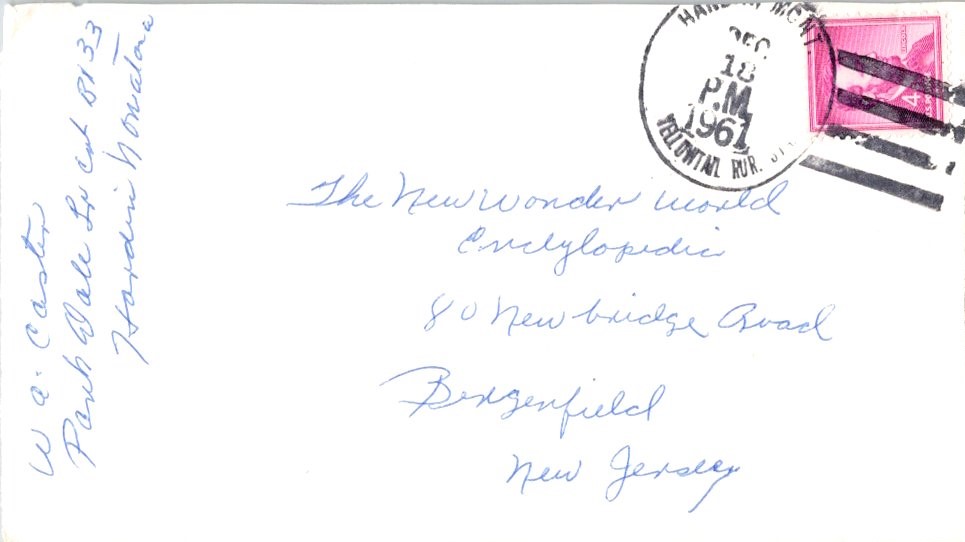 W A. Caster
Park Dale Tr Cut Bx 33
Hardin Montana
HARDIN MONT
DEC
18
P.M.
1961
YELLOWTAIL RUR. STA.
4¢
The New Wonder World
Encylopedia
80 Newbridge Road
Bergenfield
New Jersey